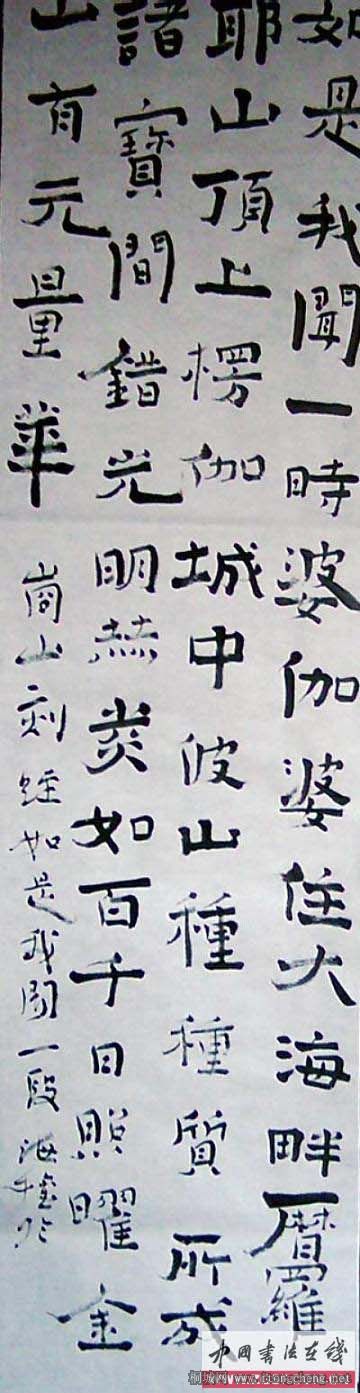 如是我聞一時婆伽婆住大海畔摩羅
耶山頂上楞伽城中彼山種種質所成
諸寶間錯光明赫炎如百千日照曜金
山有元量華
崗山刻經如是我聞一段海
中國書法在线
桐城网